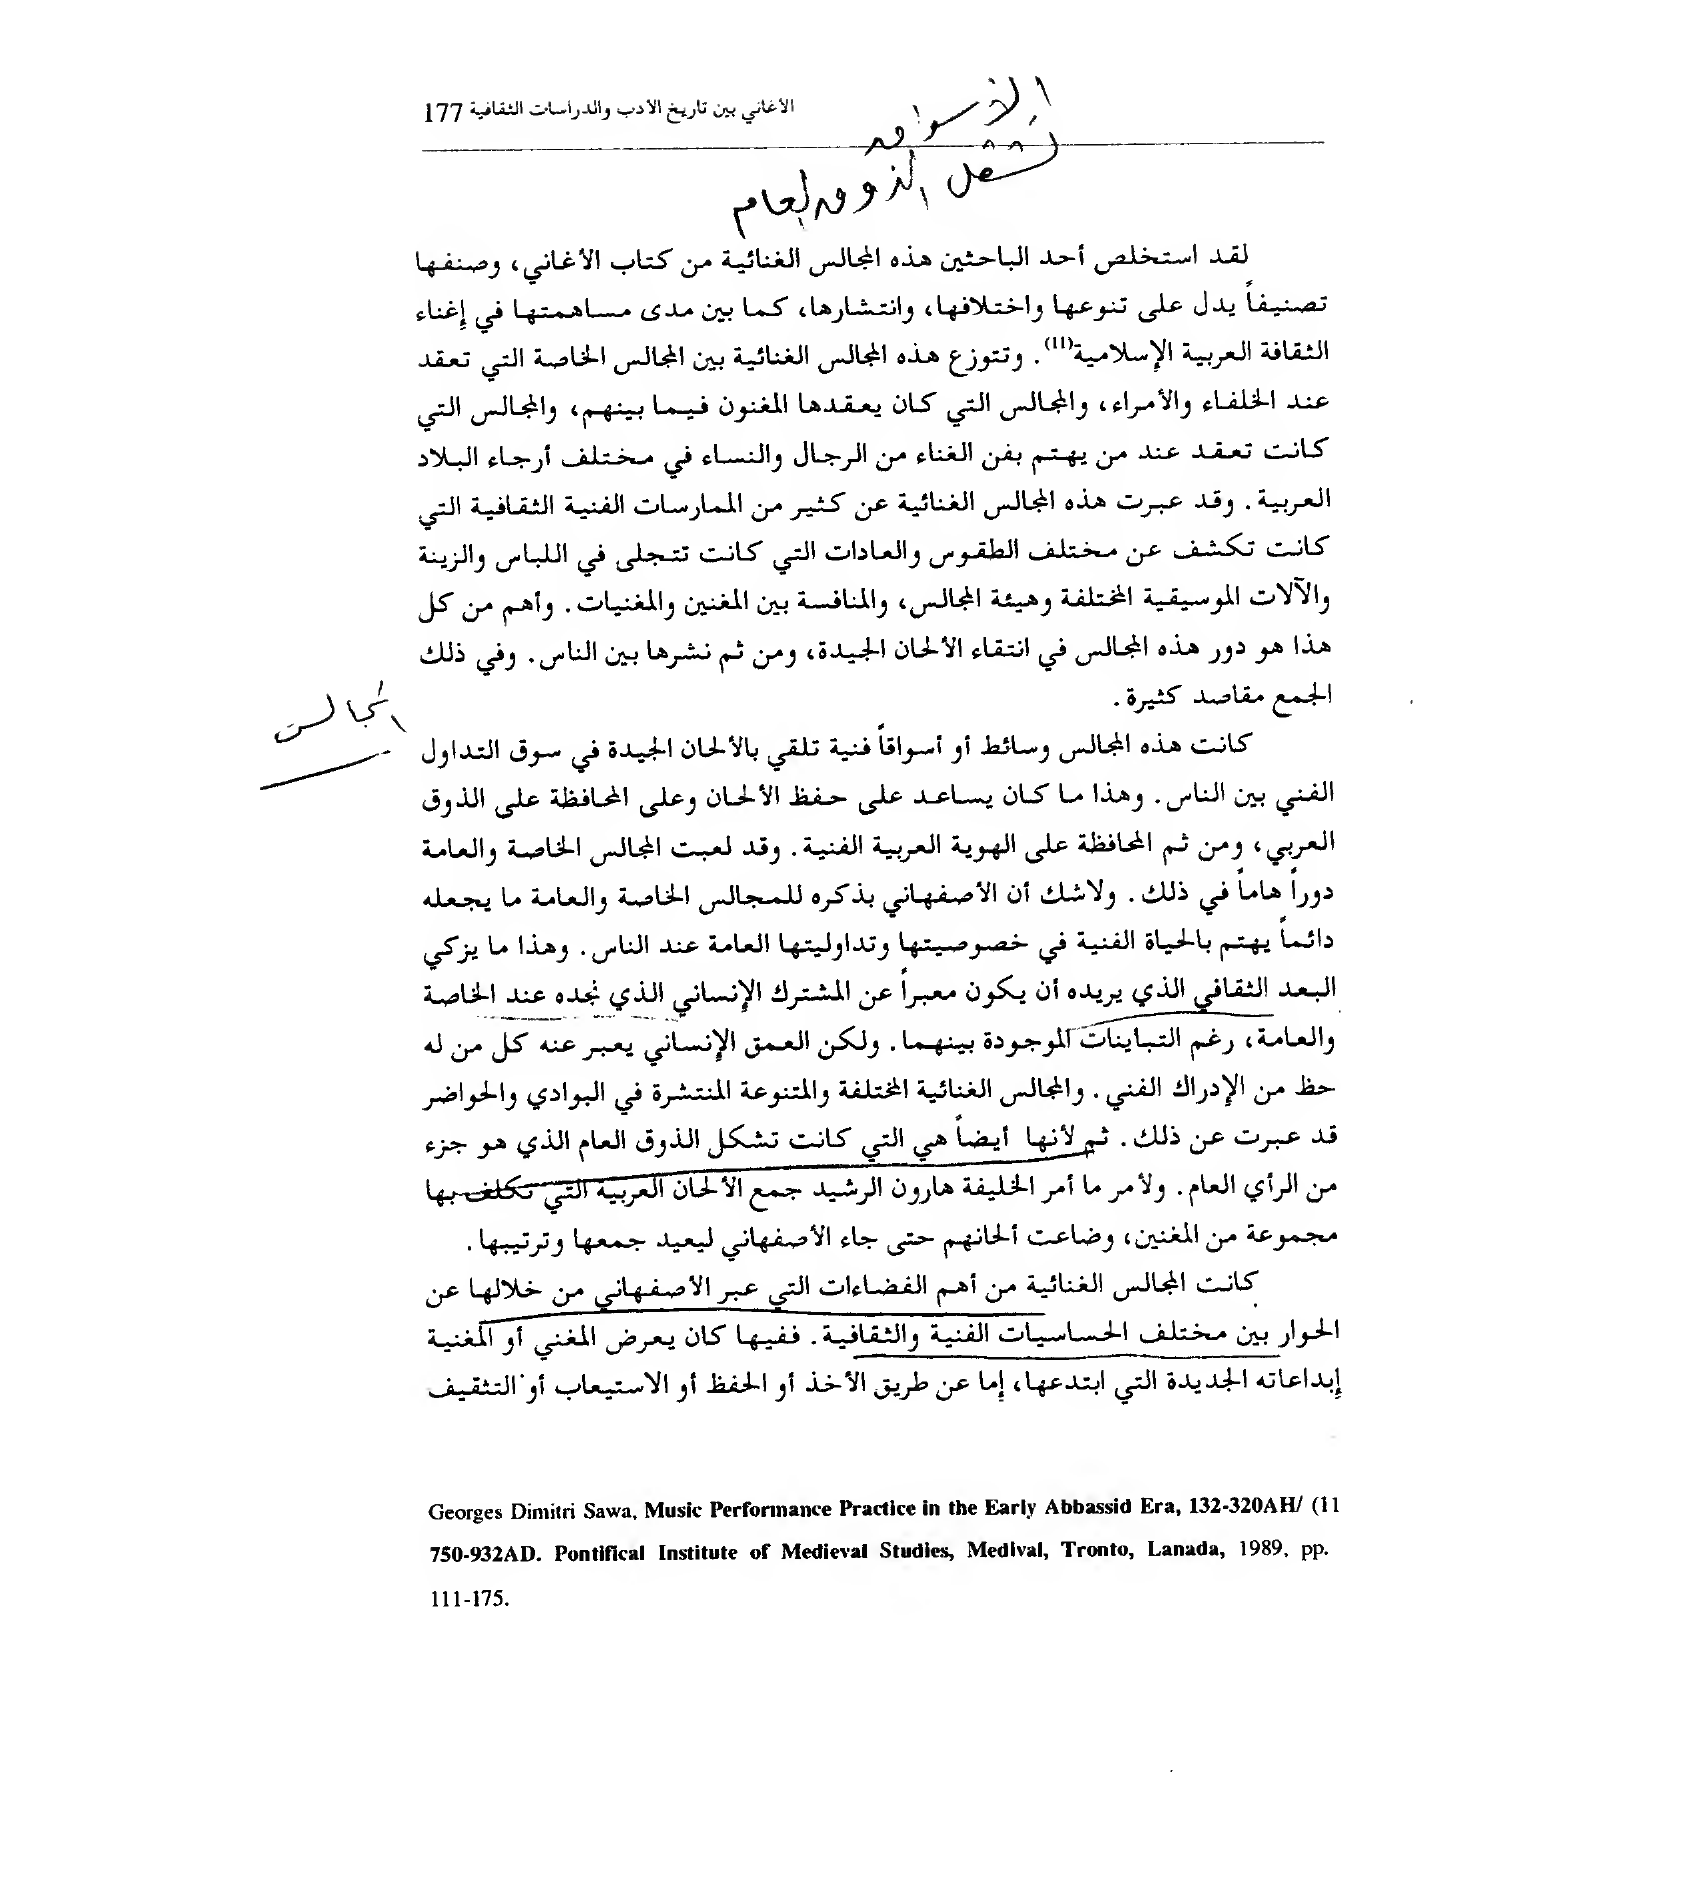 الأغاني بين تاريخ الأدب والدراسات الثقافية 177
الأسواق
تشكل الذوق العام
لقد استخلص أحد الباحثين هذه المجالس الغنائية من كتاب الأغاني، وصنفها
تصنيفاً يدل على تنوعها واختلافها، وانتشارها، كما بين مدى مساهمتها في إغناء
الثقافة العربية الإسلامية(11). وتتوزع هذه المجالس الغنائية بين المجالس الخاصة التي تعقد
عند الخلفاء والأمراء، والمجالس التي كان يعقدها المغنون فيما بينهم، والمجالس التي
كانت تعقد عند من يهتم بفن الغناء من الرجال والنساء في مختلف أرجاء البلاد
العربية. وقد عبرت هذه المجالس الغنائية عن كثير من الممارسات الفنية الثقافية التي
كانت تكشف عن مختلف الطقوس والعادات التي كانت تتجلى في اللباس والزينة
والآلات الموسيقية المختلفة وهيئة المجالس، والمنافسة بين المغنين والمغنيات. وأهم من كل
هذا هو دور هذه المجالس في انتقاء الألحان الجيدة، ومن ثم نشرها بين الناس. وفي ذلك
الجمع مقاصد كثيرة.
المجالس
كانت هذه المجالس وسائط أو أسواقاً فنية تلقي بالألحان الجيدة في سوق التداول
الفني بين الناس. وهذا ما كان يساعد على حفظ الألحان وعلى المحافظة على الذوق
العربي، ومن ثم المحافظة على الهوية العربية الفنية. وقد لعبت المجالس الخاصة والعامة
دوراً هاماً في ذلك. ولاشك أن الأصفهاني بذكره للمجالس الخاصة والعامة ما يجعله
دائماً يهتم بالحياة الفنية في خصوصيتها وتداوليتها العامة عند الناس. وهذا ما يزكي
البعد الثقافي الذي يريده أن يكون معبراً عن المشترك الإنساني الذي نجده عند الخاصة
والعامة، رغم التباينات الموجودة بينهما. ولكن العمق الإنساني يعبر عنه كل من له
حظ من الإدراك الفني. والمجالس الغنائية المختلفة والمتنوعة المنتشرة في البوادي والحواضر
قد عبرت عن ذلك. ثم لأنها أيضاً هي التي كانت تشكل الذوق العام الذي هو جزء
من الرأي العام. ولأمر ما أمر الخليفة هارون الرشيد جمع الألحان العربية التي تكلف بها
مجموعة من المغنين، وضاعت ألحانهم حتى جاء الأصفهاني ليعيد جمعها وترتيبها.
كانت المجالس الغنائية من أهم الفضاءات التي عبر الأصفهاني من خلالها عن
الحوار بين مختلف الحساسيات الفنية والثقافية. ففيها كان يعرض المغني أو المغنية
إبداعاته الجديدة التي ابتدعها، إما عن طريق الأخذ أو الحفظ أو الاستيعاب أو التثقيف
Georges Dimitri Sawa, Music Performance Practice in the Early Abbassid Era, 132-320AH/ (11
750-932AD. Pontifical Institute of Medieval Studies, Medival, Tronto, Lanada, 1989, pp.
111-175.